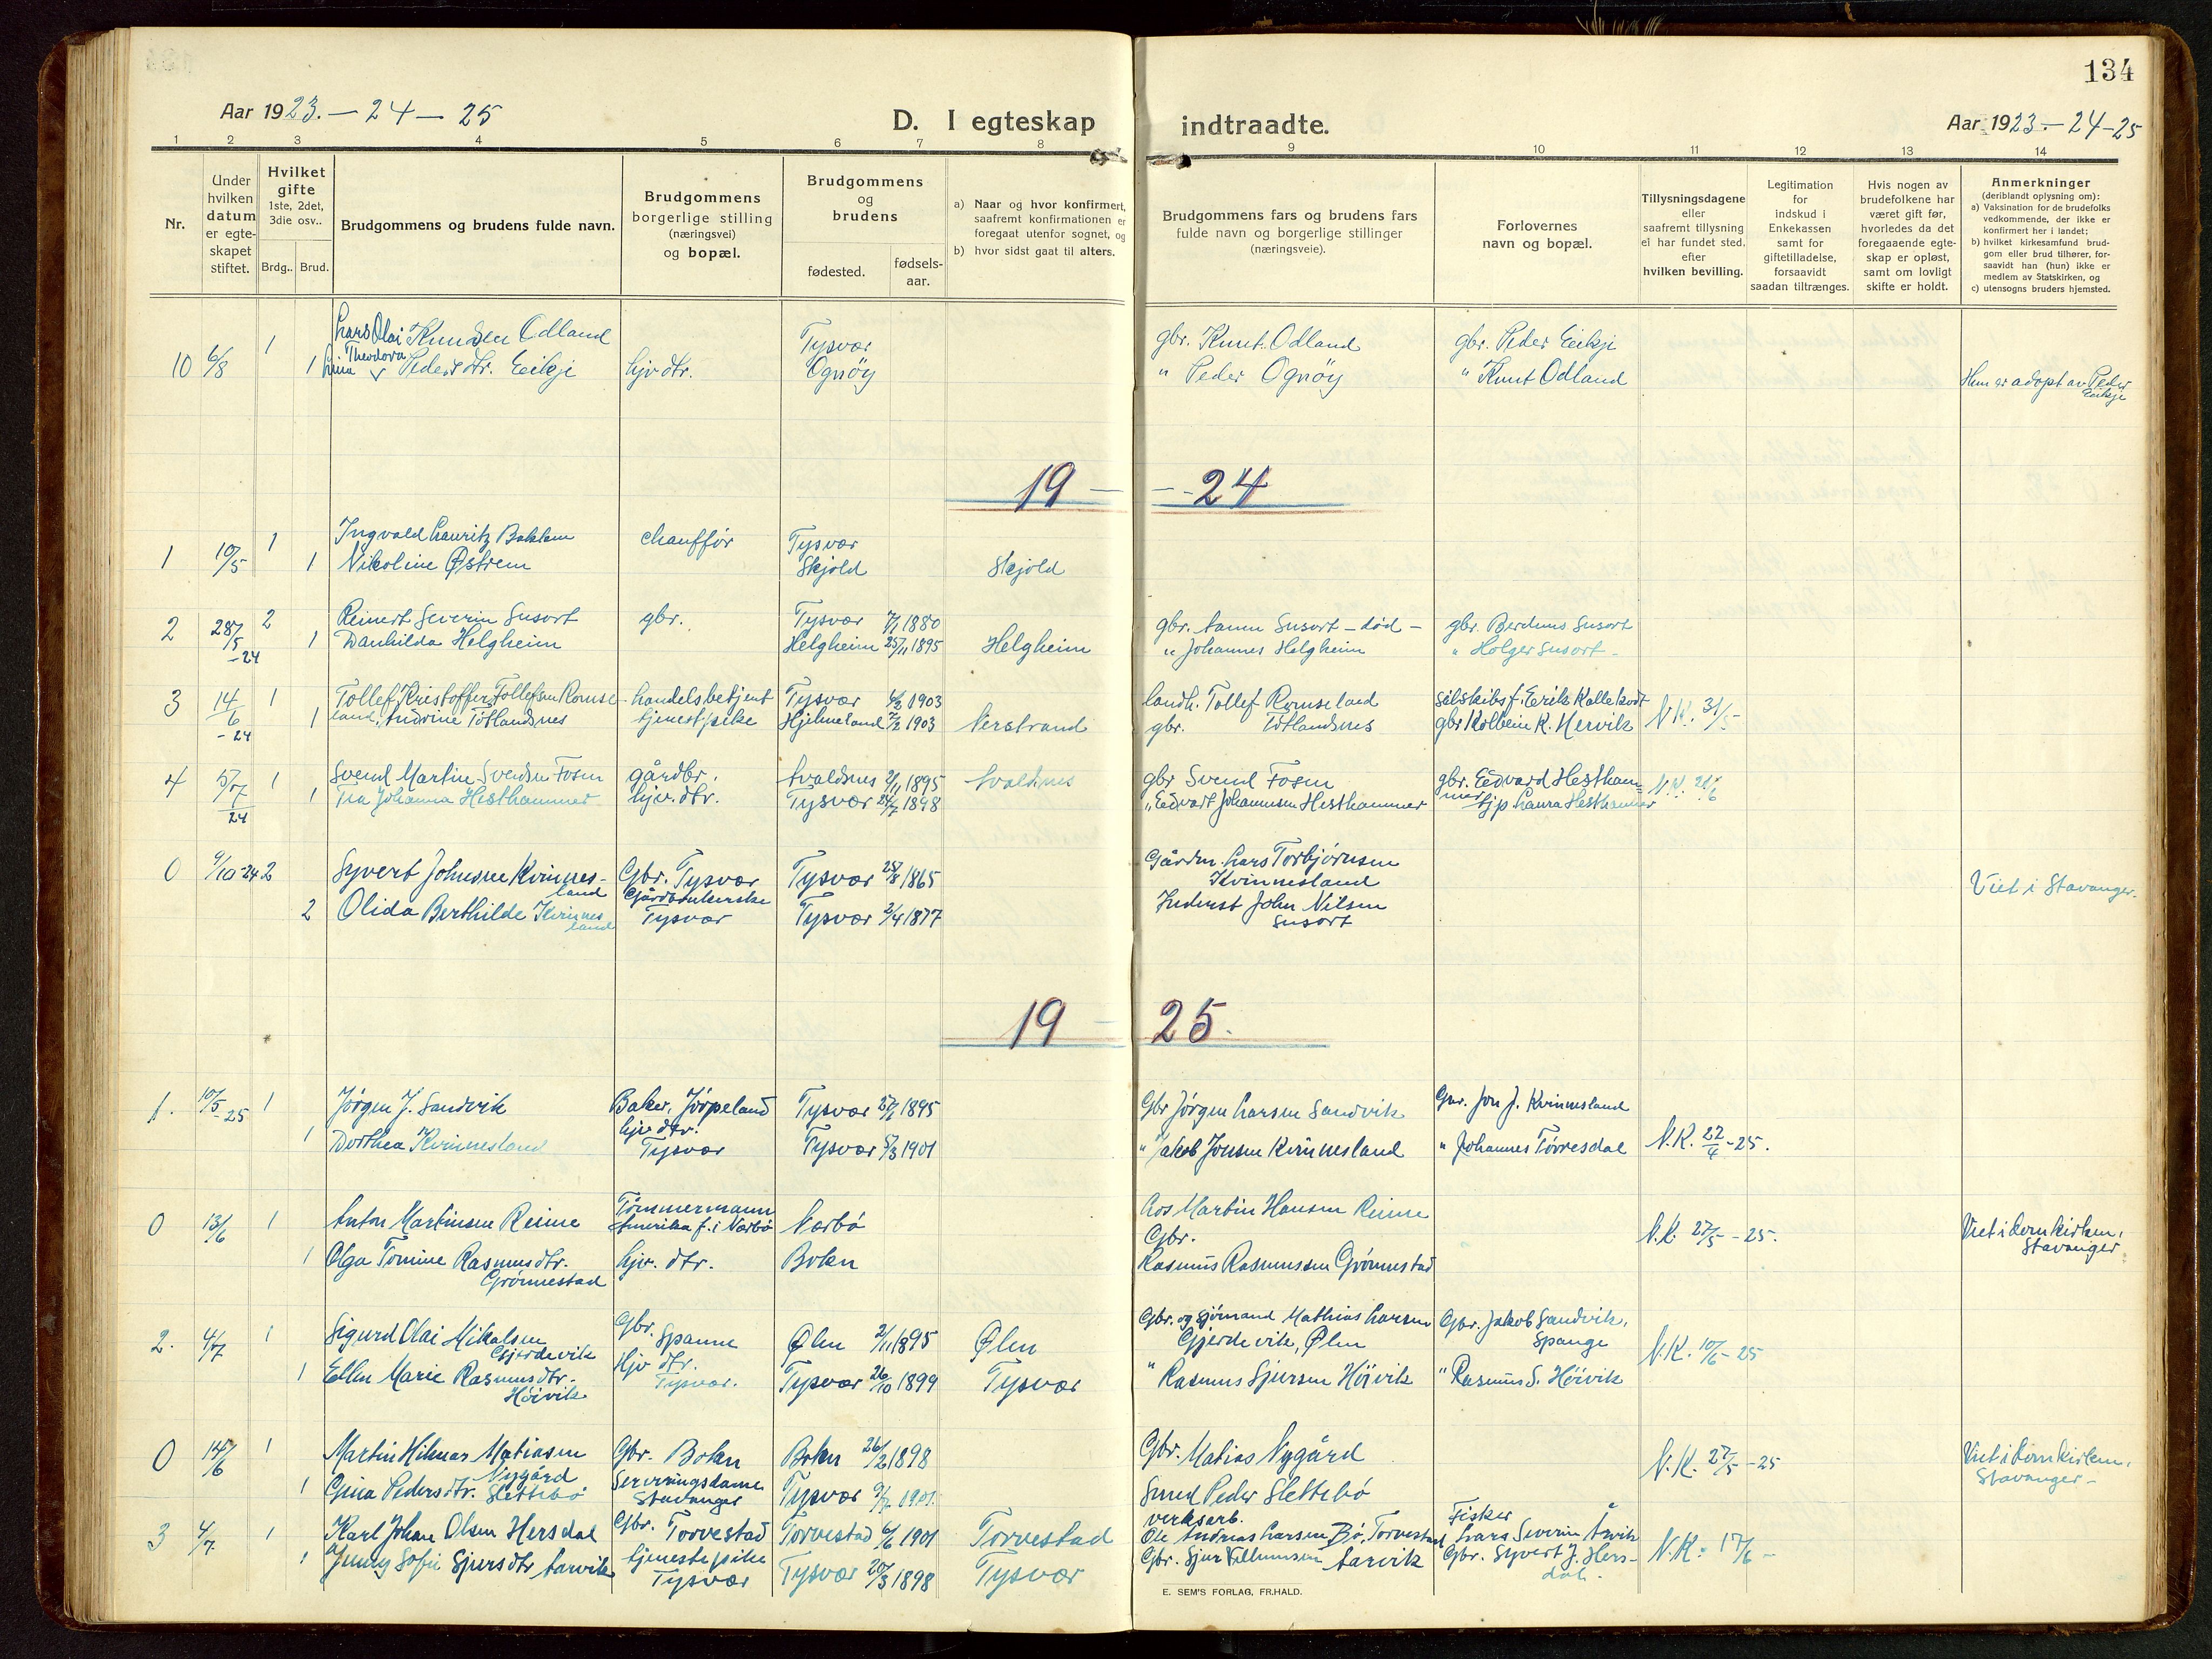 134
Aar 1923. - 24 - 25
D. I egteskap indtraadte.
Aar 1923. - 24 - 25
1 2 3 4 5 6 7 8 9 10 11 12 13 14
Nr.
Under hvilken datum er egte-skapet stiftet.
Hvilket gifte 1ste, 2det, 3die osv..
Brdg.. Brud.
Brudgommens og brudens fulde navn.
Brudgommens borgerlige stilling (næringsvei) og bopæl.
Brudgommens og brudens
fødested. fødsels-aar.
a) Naar og hvor konfirmert, saafremt konfirmationen er foregaat utenfor sognet, og
b) hvor sidst gaat til alters.
Brudgommens fars og brudens fars fulde navn og borgerlige stillinger (næringsveie).
Forlovernes navn og bopæl.
Tillysningsdagene eller saafremt tillysning ei har fundet sted, efter hvilken bevilling.
Legitimation for indskud i Enkekassen samt for giftetilladelse, forsaavidt saadan tiltrænges.
Hvis nogen av brudefolkene har været gift før, hvorledes da det foregaaende egte-skap er opløst, samt om lovligt skifte er holdt.
Anmerkninger (deriblandt oplysning om):
a) Vaksination for de brudefolks vedkommende, der ikke er konfirmert her i landet;
b) hvilket kirkesamfund brud-gom eller brud tilhører, for-saavidt han (hun) ikke er medlem av Statskirken, og
c) utensogns bruders hjemsted.
10 6/8 1 Lars Olai Knudsen Odland Tysvær gbr. Knut Odland gbr. Peder Eikje
1 Lina Theodora Pedersdtr. Eikje hjv dtr. Ognöy " Peder Ognöy " Knut Odland Hun er adopt av Peder Eikje
19 - - 24
1 10/5 1 Ingvald Lauritz Bakken chauffør Tysvær
1 Nikoline Østrem Skjold Skjold
2 28/5 -24 2 Reinert Severin Susort gbr. Tysvær 7/1 1880 gbr. Susort - död - gbr. Berdines Susort
1 Danhilda Helgheim Helgheim 25/11 1895 Helgheim " Johannes Helgheim " Holger Susort -
3 14/6 - 24 1 Tollef Kristoffer Tollefsen Romse- handelsbetjent Tysvær 1903 landh. Tollef Romseland Erik Kallekodt
1 land, Andrine Tötlandsnes tjenestpike Hjelmeland 1903 Nerstrand gbr. Tötlandsnes gbr Kolbein K. Hervik N.K. 31/5 -
4 5/7 24 1 Svend Martin Svendsen Fosen gårdbr. Avaldsnes 2/11 1895 Avaldsnes gbr Svend Fosen gbr. Edvard Hestham=
1 Tea Johanna Hesthammer hjv. dtr. Tysvær 24/7 1898 " Edvard Johannesen Hesthammer mer tjp Laura Hesthammer N.K. 21/6
0 9/10-24 2 Syvert Johnsen Kvinnes-land Gbr. Tysvær Tysvær 28/8 1865 Gårdm. Lars Torbjørnsen Kvinnesland
2 Olida Berthilde Kvinnesland Gårdbrukerske Tysvær Tysvær 2/4 1877 Inderst John Nilsen Susort Viet i Stavanger.
19 - 25.
1. 10/5 - 25 1 Jørgen J. Sandvik Baker, Jørpeland Tysvær 1895 Gbr Jørgen Larsen Sandvik Gbr. Jon J. Kvinnesland
1 Dorthea Kvinnesland hjv dtr. Tysvær Tysvær 1901 " Jakob Jonsen Kvinnesland " Johannes Tørresdal N.K. 22/4 - 25.
0 13/6 1 Anton Martinsen Reime Tømmermann Amerika f. i Nærbø Nærbö Martin Hansen Reime
1 Olga Tomine Rasmusdtr. Grönnestad hjv. dtr. Bokn Gbr. Rasmus Rasmussen Grönnestad N.K. 27/5 - 25. Viet i domkirken, Stavanger
2. 4/7 1 Sigurd Olai Mikalsen Gjerdevik Gbr. Spanne Ølen 2/11 1895 Ølen Gbr. og sjömand Mathias Larsen Gjerdevik, Ølen Gbr. Jakob Sandvik, Spange
1 Ellen Marie Rasmusdtr. Höivik Hjv dtr. Tysvær. Tysvær 26/10 1899 Tysvær " Rasmus Sjursen Höivik " Rasmus S. Höivik N.K. 10/6 - 25
0 14/6 1 Martin Hilmar Matiasen Nygård Gbr. Bokn Bokn 26/2 1898 Gbr. Matias Nygård N.K. 27/5 - 25 Viet i domkirken, Stavanger -
1 Gina Pedersdtr. Slettebö Serveringsdame Stavanger Tysvær 1901. Smed Peder Slettebö
3 4/7 1 Karl Johan Olsen Hersdal Gbr. Torvestad Torvestad 6/6 1901 Torvestad verksarb. Ole Andreas Larsen Bö, Torvestad Fisker Lars Severin Årvik
1 Jenny Sofie Sjursdtr Aarvik tjenestepike Tysvær Tysvær 20/3 1898 Tysvær Gbr. Sjur Aarvik Gbr. Syvert J. Hers-dal. N.K. 17/6 -
E. SEM'S FORLAG, FR.HALD.